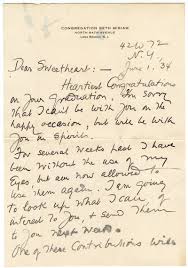 CONGREGATION BETH MIRIAM
NORTH BATH AVENUE
LONG BRANCH, N. J.
42 W 72
N.Y
June 1, '34
Dear Sweetheart:
Heartiest Congratulations
on your graduation. I'm sorry
that I can't be with you on the
happy occasion, but will be with
you in spirit.
For several weeks past I have
been without the use of my
Eyes but am now allowed to
use them again. I am going
to look up what I can, of
interest to you, & send them
to you next week.
One of these contributions will